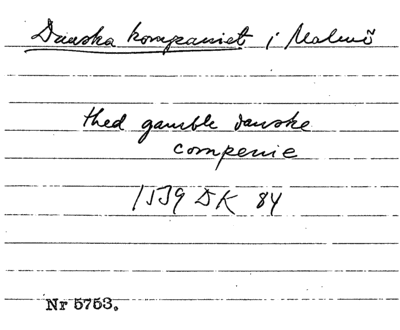 Danska kompaniet i Malmö
thed gamble danske
compenie
1539 DK 84
Nr 5753.